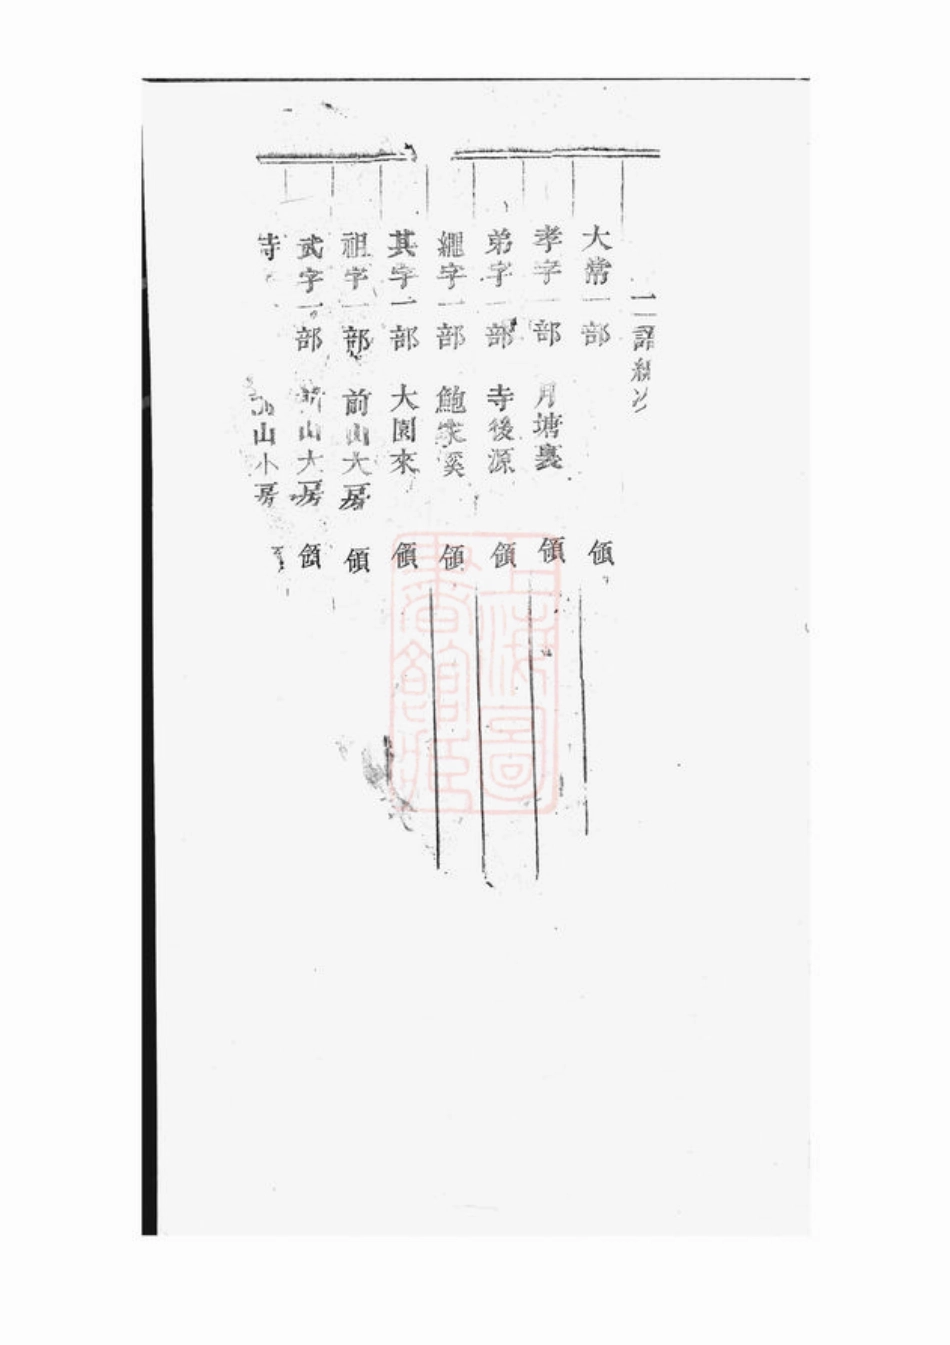 二譜編次
大常一部 領
孝字一部 月塘裏 領
弟字一部 寺後源 領
繩字一部 鮑家奚 領
其字一部 大園來 領
祖字一部 前山大房 領
武字一部 前山大房 領
山小房
上海圖書館藏